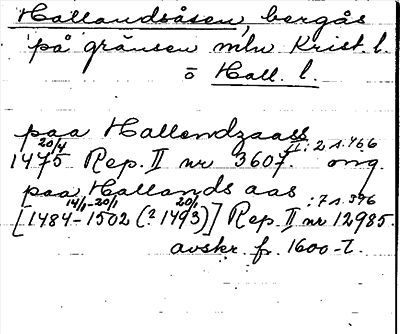 Hallandsåsen, bergås
på gränsen mln Krist. l.
o Hall. l.
paa Hallendzaass
1475 20/4 Rep. II nr 3607. II: 2 s. 466 orig.
paa Hallands aas
[1484 14/1 - 1502 20/1 (? 1493 20/1)] Rep. II nr 12985. : 7 s. 396
avskr. fr. 1600-t.